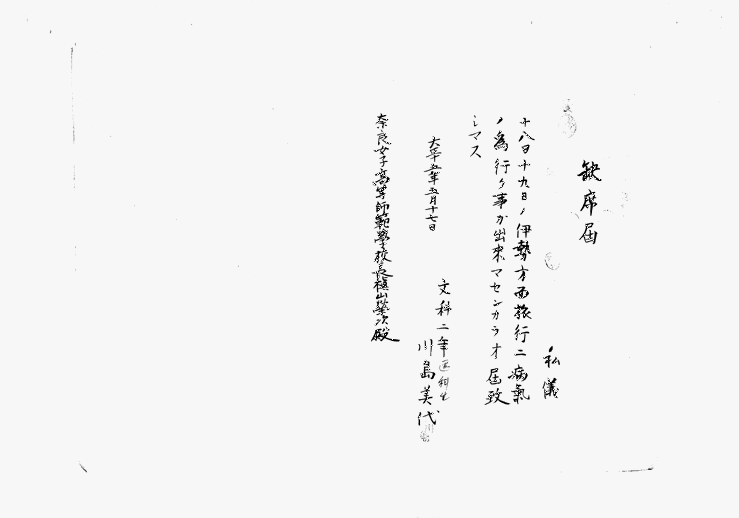 缺席屆
私儀
十八日十九日ノ伊勢方面旅行ニ病氣
ノ爲行ク事ガ出來マセンカラオ屆致
シマス
大正五年五月十七日
文科二年
川島美代
奈良女子高等師範學校長槇山榮次殿